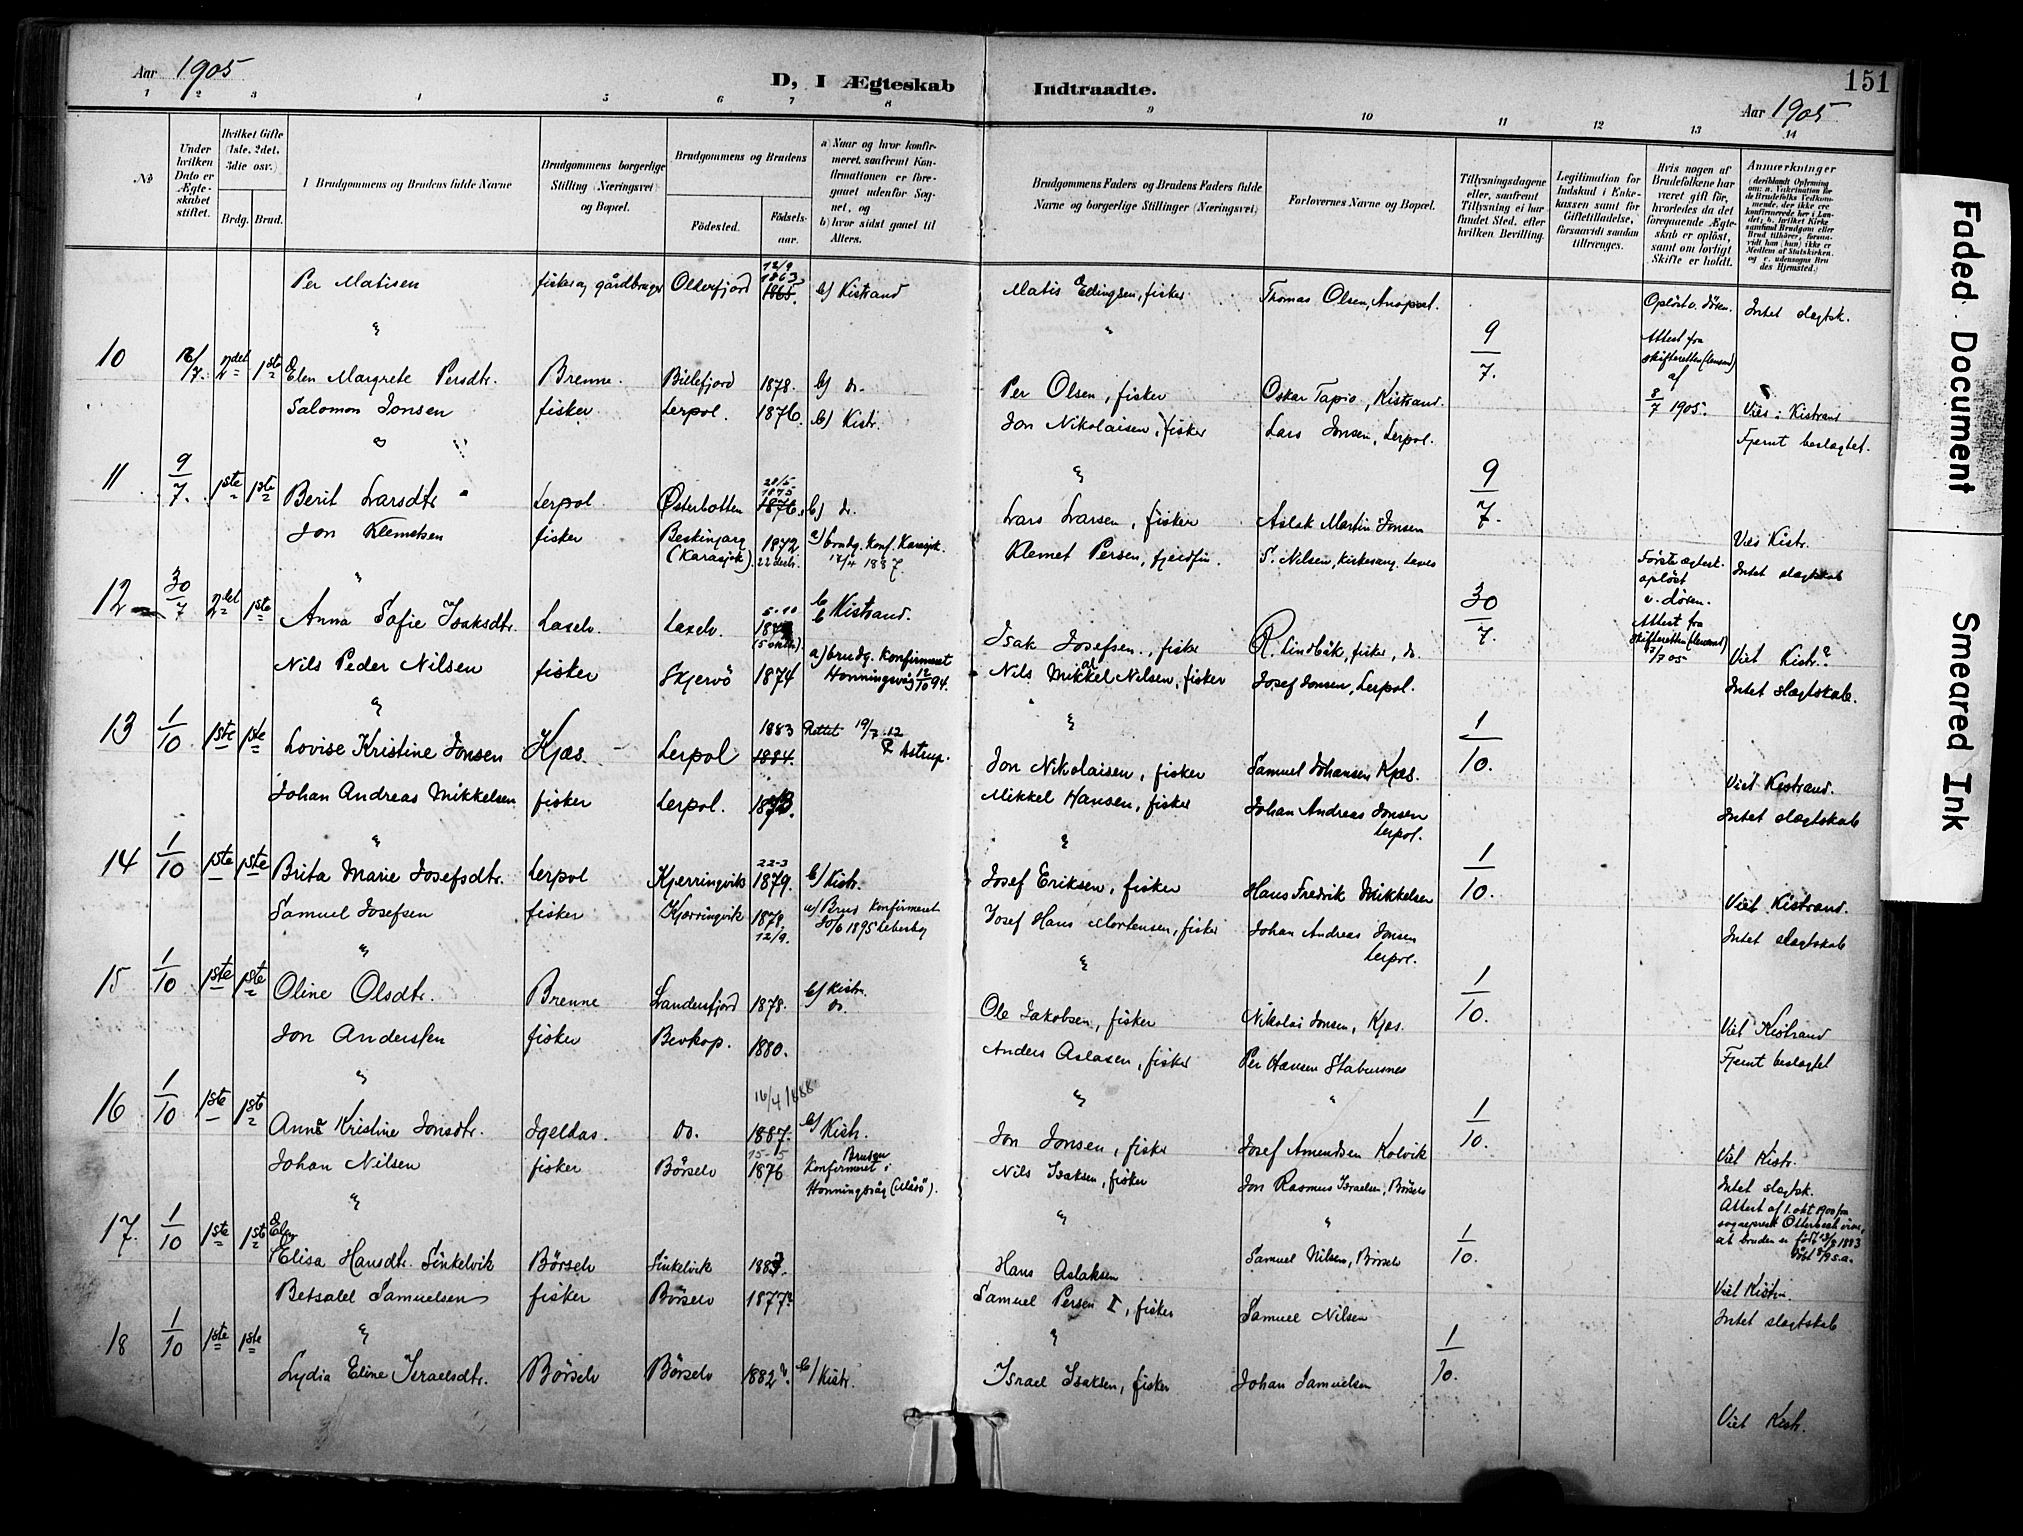 Aar 1905
D, I Ægteskab Indtraadte.
151
Aar 1905
1 2 3 4 5 6 7 8 9 10 11 12 13 14
No
Under hvilken Dato er Ægteskabet stiftet.
Hvilket Gifte (1ste, 2det, 3die osv.)
Brdg. Brud.
Brudgommens og Brudens fulde Navne
Brudgommens borgerlige Stilling (Næringsvei) og Bopæl.
Brudgommens og Brudens
Fødested. Fødselsaar.
a) Naar og hvor konfirmeret, saafremt Konfirmationen er foregaaet udenfor Sognet, og
b) hvor sidst gaaet til Alters.
Brudgommens Faders og Brudens Faders fulde Navne og borgerlige Stillinger (Næringsvei)
Forlovernes Navne og Bopæl.
Tillysningsdagene eller, saafremt Tillysning ei har fundet Sted, efter hvilken Bevilling.
Legitimation for Indskud i Enkekassen samt for Giftetilladelse, forsaavidt saadan tiltrænges.
Hvis nogen af Brudefolkene har været gift før, hvorledes da det foregaaende Ægteskab er opløst, samt om lovligt Skifte er holdt.
Anmærkninger
Per Matisen fisker og gårdbruger Olderfjord 12/9 1863 1865. b) Kistrand Matis Edingsen, fisker Thomas Olsen, Opløst v. døden. Intet slagtsk.
10 16/7. 2det 1ste Elen Margrete Persdtr. Brenne. Billefjord 1878. b) do. Per Olsen, fisker Oskar Tapio, Kistrand. 9/7. Attest fra skifteretten (lensmd) af 8/7 1905. Viet: Kistrand
Salomon Jonsen fisker Lerpol. 1876. b) Kistr. Jon Nikolaisen, fisker Lars Jonsen, Lerpol. Fjernt beslagtet.
11 9/7. 1ste 1ste Berit Larsdtr. Lerpol. Østerbotten 28/5 1875 1876. b) do. Lars Larsen, fisker Aslak Martin Jonsen 9/7. Viet Kistr.
Jon Klemetsen fisker Beskinjarg (Karasjok). 1872 22 decbr. a) brudg. konf. Karasjok. 12/4 1887. Klemet Persen, fjeldfin. S. Nilsen, kirkesang. Laxes Intet slagtskab
12 30/7 2det 1ste Anna Sofie Isaksdtr. Laxelv. Laxelv. 5-10 (5 oktb.) b Kistrand. Isak Josefsen, fisker R. Lindbäk, fisker, do. 30/7. Første ægtesk. opløst v. døden. Attest fra skifteretten (lensmd) 8/7 05 Viet Kistr.
Nils Peder Nilsen fisker Skjervö 1874 a) brudg. konfirmeret Honningsvåg 12/10 94. Nils Mikkel Nilsen, fisker Josef Jonsen, Lerpol. Intet slagtskab.
13 1/10 1ste 1ste Lovise Kristine Jonsen Kjæs. Lerpol 1883 1884. Rettet 19/7 12 P. Astrup. Jon Nikolaisen, fisker Samuel Johansen Kjæs. 1/10. Viet Kistrand.
Johan Andreas Mikkelsen fisker Lerpol. 1873. Mikkel Hansen, fisker Johan Andreas Jonsen Lerpol. Intet slagtskab
14 1/10 1ste 1ste Brita Marie Josefsdtr. Lerpol Kjerringvik 22-3 1879. b) Kistr. Josef Eriksen, fisker Hans Fredrik Mikkelsen 1/10. Viet Kistrand.
Samuel Josefsen fisker Kjerringvik 1878. 12/9. a) Brud konfirmeret 30/6 1895 Lebesby Josef Hans Mortensen, fisker Johan Andreas Jonsen Lerpol. Intet slagtskab
15 1/10 1ste 1ste Oline Olsdtr. Brenne Landersfjord 1878. b) Kistr. do. Ole Jakobsen, fisker Nikolai Jonsen, Kjæs. 1/10. Viet Kistrand
Jon Anderssen fisker Bevkop. 1880. Anders Aslasen, fisker Per Hansen Stabursnes Fjernt beslagtet
16 1/10 1ste 1ste Anna Kristine Jonsdtr. Igeldas. do. 16/4 1888 1887. b) Kistr. Jon Jonsen, fisker Josef Amundsen Kolvik 1/10. Viet Kistr.
Johan Nilsen fisker Börselv 15-5 1876 Bruden konfirmeret i Honningsvåg (Måsö). Nils Isaksen, fisker Jon Rasmus Israelsen, Börselv Intet slagtsk.
17. 1/10 1ste 1ste Elen Elisa Hansdtr. Sinkelvik Börselv Sinkelvik 1883. Hans Aslaksen Samuel Nilsen, Börselv 1/10. Attest af 1. okt 1900 fra sogneprest Otterbech viser, at bruden er født 13/8 1883 døbt 8/9 s.a. Viet Kistr.
Betsalel Samuelsen fisker Börselv 1877? Samuel Persen I, fisker Samuel Nilsen Intet slagtskab
18 1/10 1ste 1ste Lydia Eline Israelsdtr. Börselv Börselv 1882?. b) Kistr. Israel Isaksen, fisker Johan Samuelsen 1/10. Viet Kistr.
Faded Document
Smeared Ink